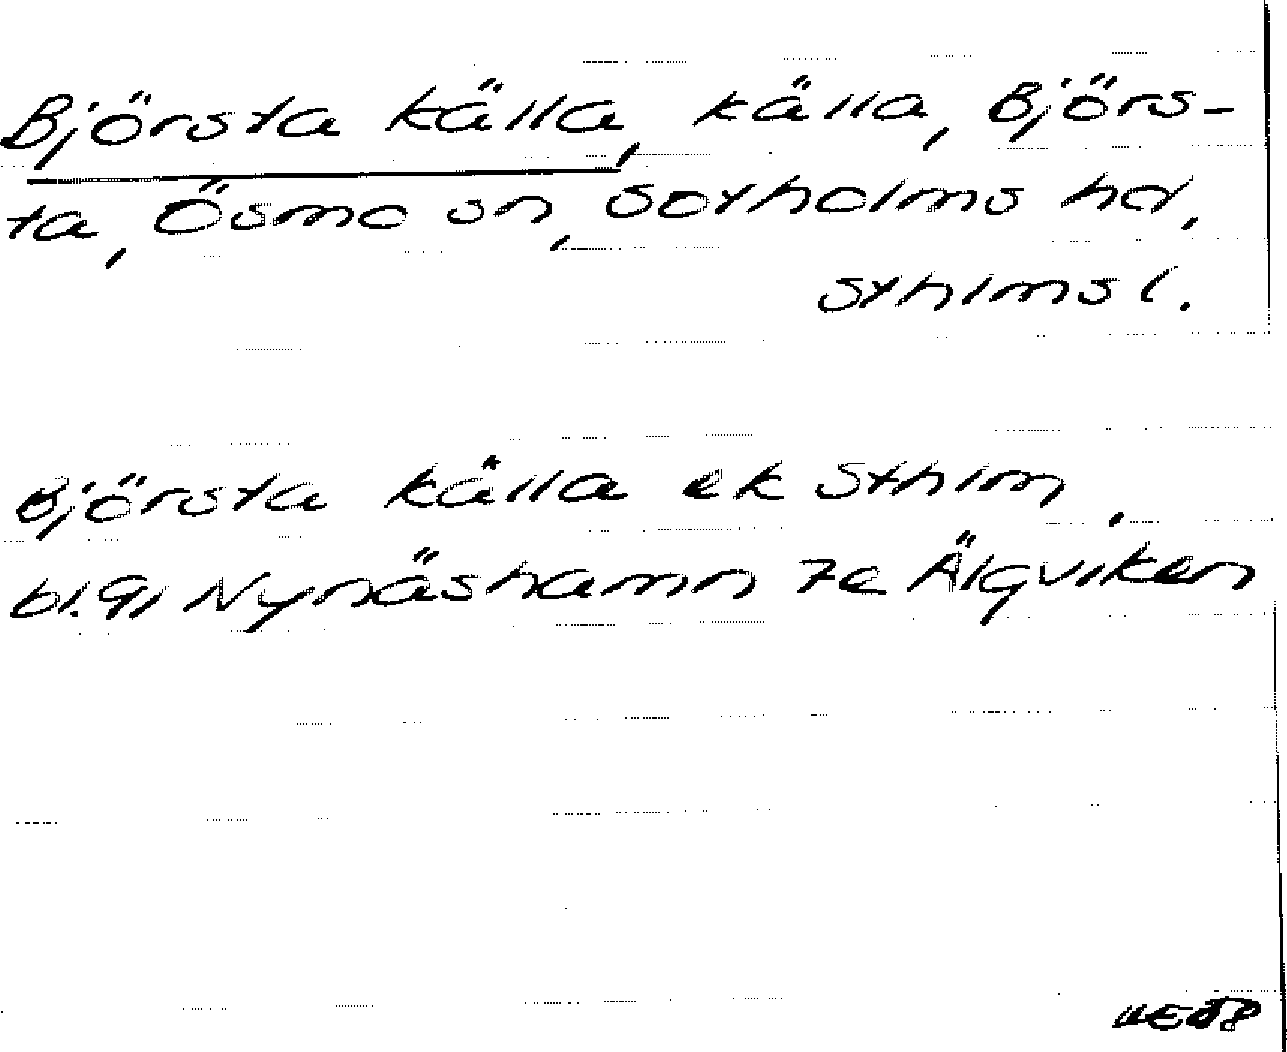 Björsta källa, källa, Björs-
ta, Ösmo sn, Sotholms hd,
Sthlms l.
Björsta källa ek Sthlm,
bl. 91 Nynäshamn 7e Älgviken